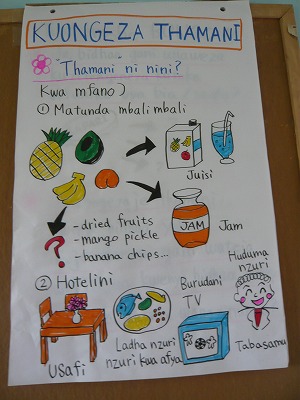 KUONGEZA THAMANI
"Thamani" ni nini?
Kwa mfano)
① Matunda mbali mbali
Juisi
JAM
Jam
- dried fruits
- mango pickle
- banana chips...
?
② Hotelini
Usafi
Ladha nzuri
nzuri kwa afya
Burudani
TV
Huduma
nzuri
Tabasamu